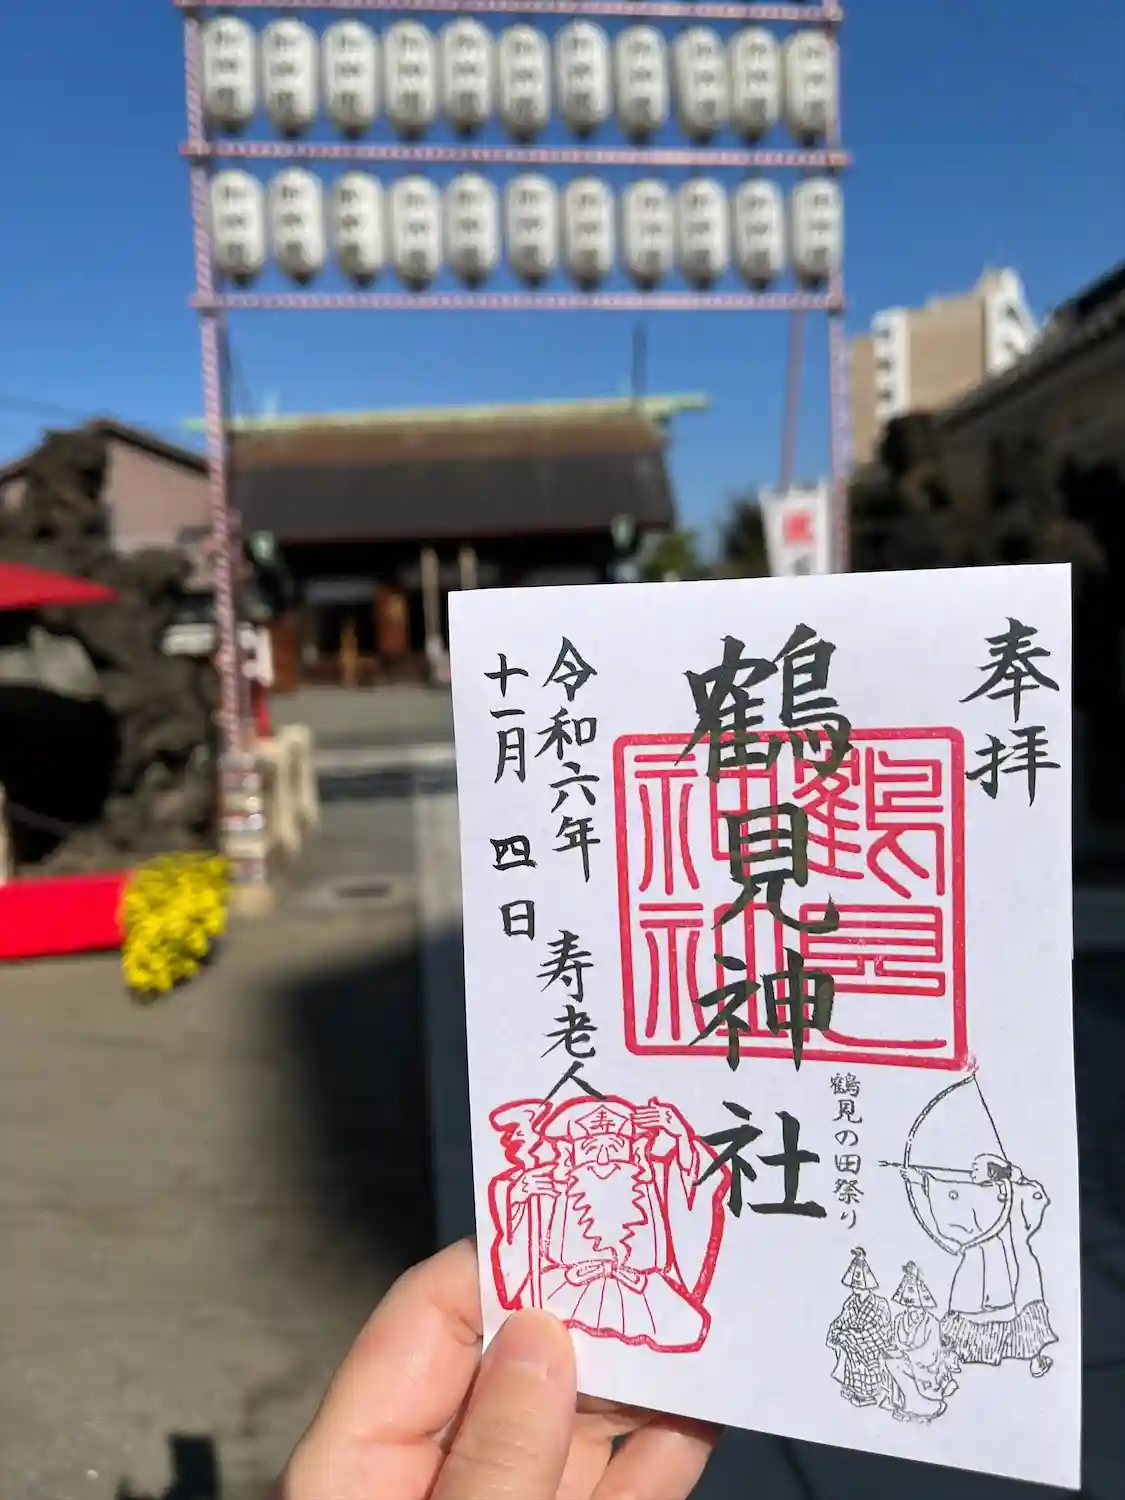 奉拝
鶴見神社
鶴見神社
鶴見の田祭り
令和六年
十一月四日
寿老人
寿